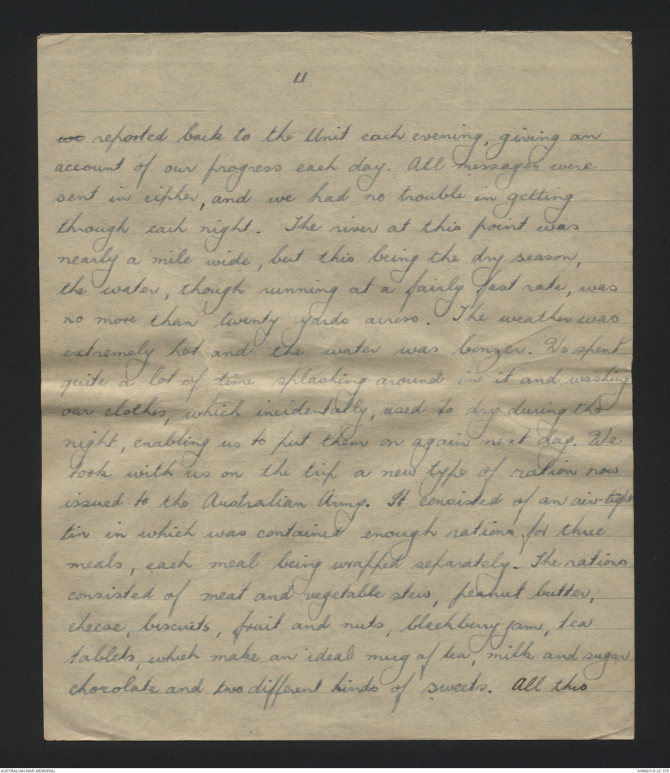 11
we reported back to the Unit each evening, giving an
account of our progress each day. All messages were
sent in cipher, and we had no trouble in getting
through each night. The river at this point was
nearly a mile wide, but this being the dry season,
the water, though running at a fairly fast rate, was
no more than twenty yards across. The weather was
extremely hot and the water was bonzer. We spent
quite a lot of time splashing around in it and washing
our clothes, which incidentally, used to dry during the
night, enabling us to put them on again next day. We
took with us on the trip a new type of ration now
issued to the Australian Army. It consisted of an air-tight
tin in which was contained enough rations for three
meals, each meal being wrapped separately. The rations
consisted of meat and vegetable stew, peanut butter,
cheese, biscuits, fruit and nuts, blackberry jam, tea
tablets, which make an ideal mug of tea, milk and sugar
chocolate and two different kinds of sweets. All this
AUSTRALIAN WAR MEMORIAL